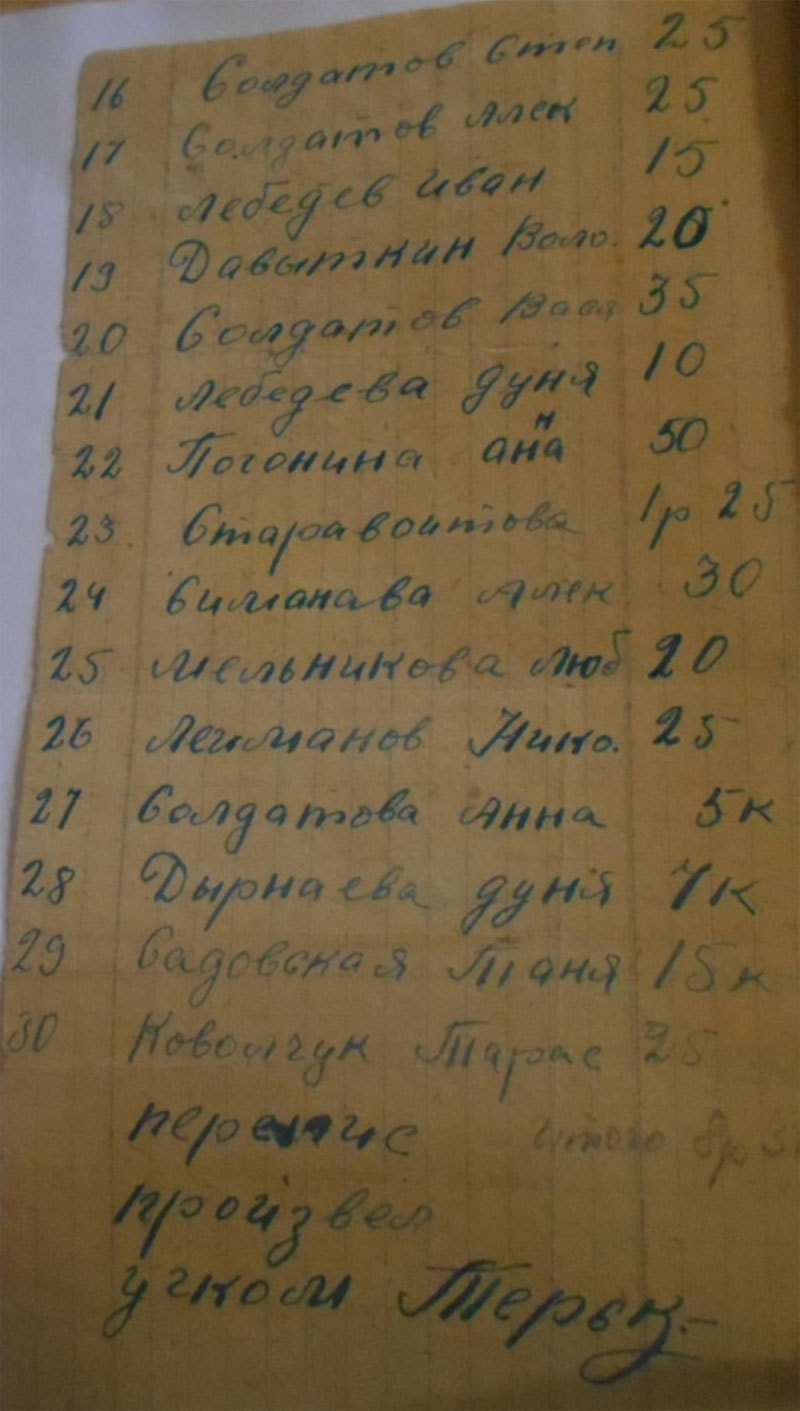 16 Солдатов Степ 25
17 Солдатов Алек 25
18 Лебедев Иван 15
19 Давыткин Воло. 20
20 Солдатов Вася 35
21 Лебедева Дуня 10
22 Погонина Анна 50
23 Старавоитова 1р 25
24 Симанава Алек 30
25 Мельникова Люб 20
26 Леиманов Нико. 25
27 Солдатова Анна 5к
28 Дырнаева Дуня 7к
29 Садовская Таня 15к
30 Коволчук Тарас 25
перепис итого 8р
произвел
учком